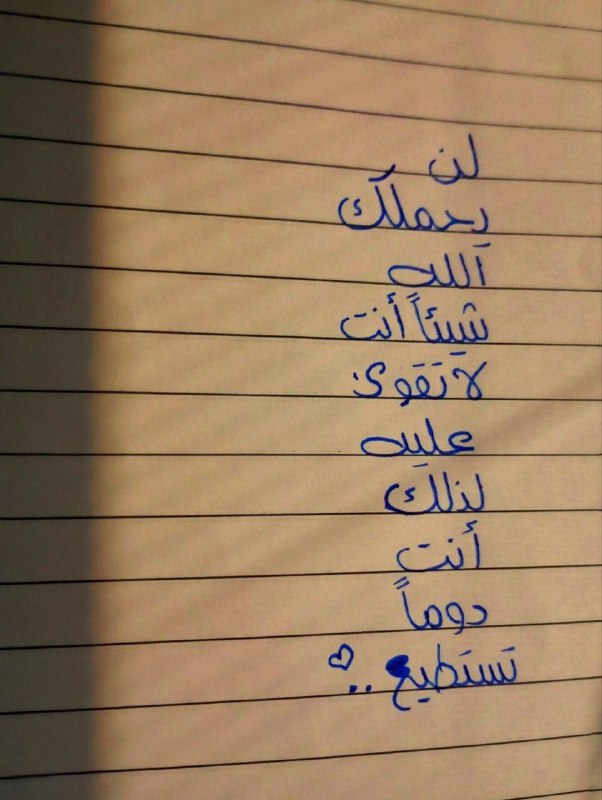 لن
يحملك
الله
شيئاً أنت
لا تقوى
عليه
لذلك
أنت
دوماً
تستطيع ..♡